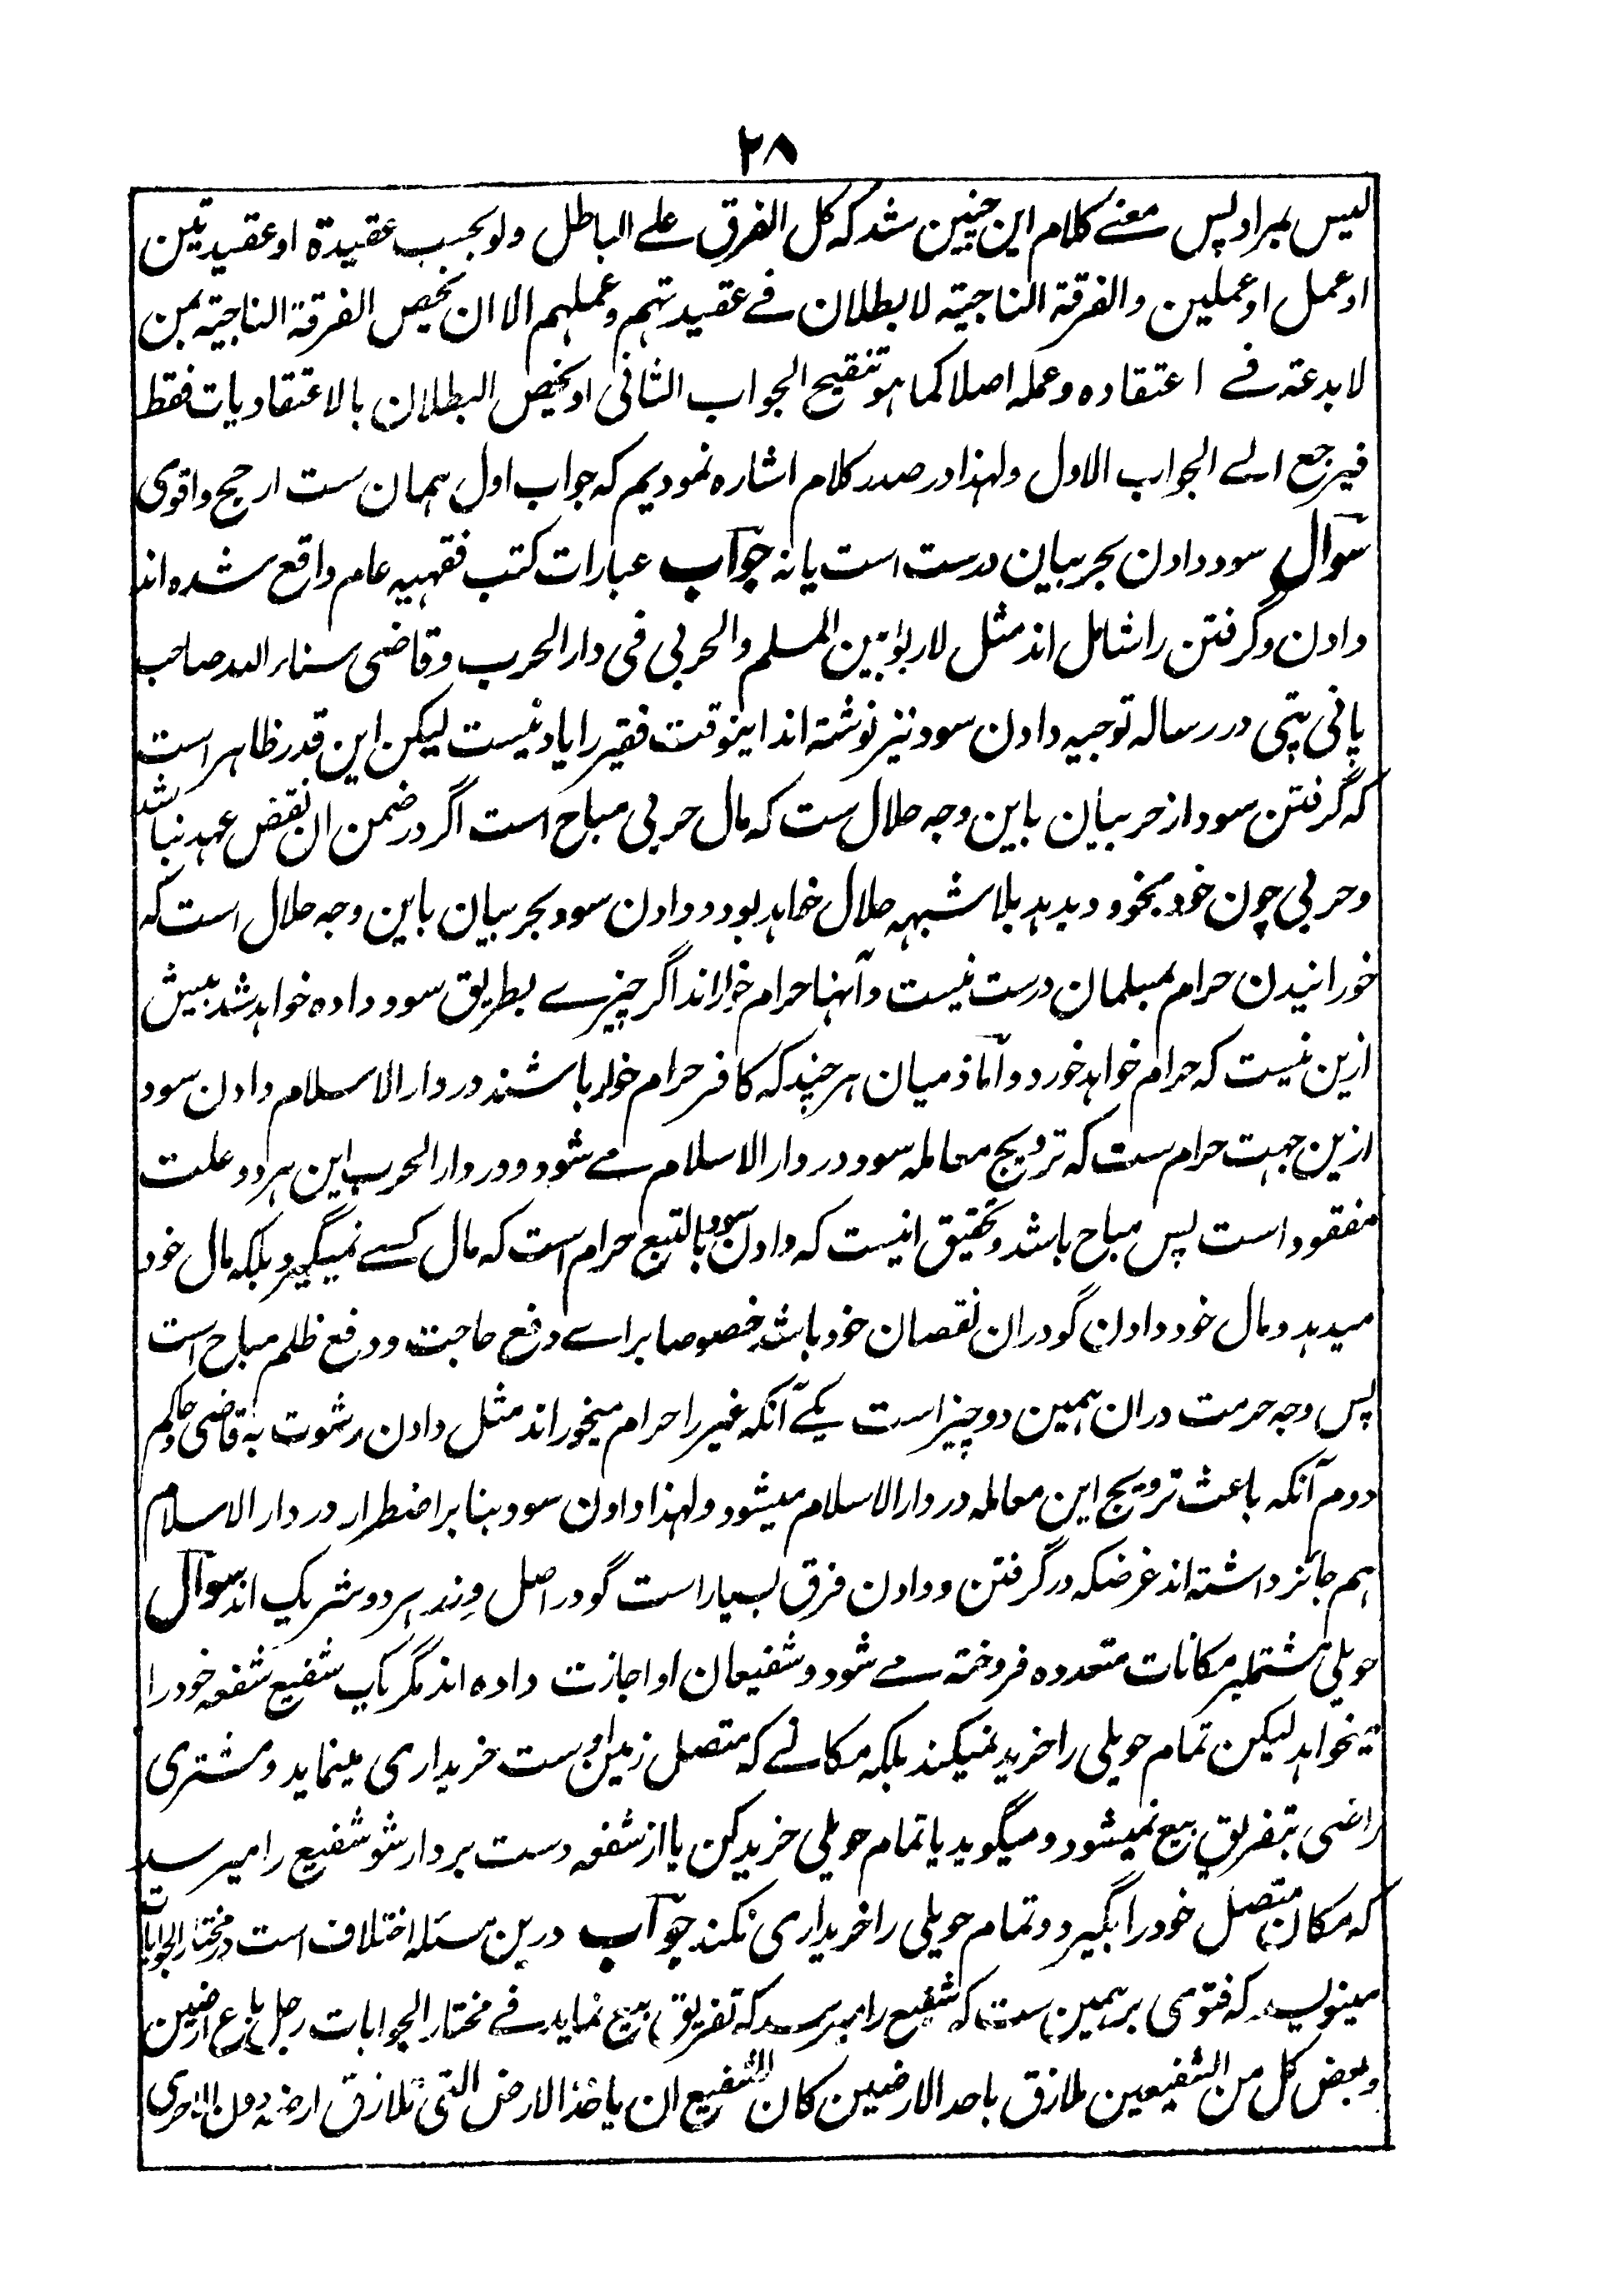 ۲۸
لیس بمراد پس معنے کلام این چنین شد که کل الفرق علے الباطل ولو بحسب عقیدة او عقیدتین
او عمل او عملین والفرقة الناجیة لا بطلان فے عقیدتهم وعملهم الا ان یخص الفرقة الناجیة بمن
لا بدعة فے اعتقاده وعمله اصلا کما هو تنقیح الجواب الثانی او یخص البطلان بالاعتقادیات فقط
فیرجع الے الجواب الاول ولهذا در صدر کلام اشاره نمودیم که جواب اول همان ست ارجح واقوی
سوال سود دادن بحربیان درست است یا نه جواب عبارات کتب فقهیه عام واقع شده اند
دادن وگرفتن را شامل اند مثل لا ربوا بین المسلم والحربی فی دار الحرب وقاضی سناء الله صاحب
پانی پتی در رساله توجیه دادن سود نیز نوشته اند اینوقت فقیر را یاد نیست لیکن این قدر ظاهر است
که گرفتن سود از حربیان باین وجه حلال ست که مال حربی مباح است اگر در ضمن ان نقض عهد نباشد
وحربی چون خود بخود بدهد بلا شبهه حلال خواهد بود ودادن سود بحربیان باین وجه حلال است که
خورانیدن حرام بمسلمان درست نیست وآنها حرام خوار اند اگر چیزے بطریق سود داده خواهد شد بیش
ازین نیست که حرام خواهد خورد واما ذمیان هر چند که کافر حرام خوار باشند در دار الاسلام دادن سود
ازین جهت حرام ست که ترویج معامله سود در دار الاسلام مے شود ودر دار الحرب این هر دو علت
مفقود است پس مباح باشد وتحقیق انیست که دادن سود بالتبع حرام است که مال کسے نمیگیرد بلکه مال خود
میدهد ومال خود دادن گو دران نقصان خود باشد خصوصا براے دفع حاجت ودفع ظلم مباح است
پس وجه حرمت دران همین دو چیز است یکے آنکه غیر را حرام میخوراند مثل دادن رشوت به قاضی وحاکم
دوم آنکه باعث ترویج این معامله در دار الاسلام میشود ولهذا دادن سود بنا بر اضطرار در دار الاسلام
هم جائز داشته اند غرضکه در گرفتن ودادن فرق بسیار است گو در اصل وزر هر دو شریک اند سوال
حویلی مشتملبر مکانات متعدده فروخته مے شود وشفیعان او اجازت داده اند مگر یک شفیع شفعه خود را
میخواهد لیکن تمام حویلی را خرید نمیکند بلکه مکانے که متصل زمین اوست خریداری مینماید ومشتری
راضی بتفریق بیع نمیشود ومیگوید یا تمام حویلی خرید کن یا از شفعه دست بردار شو شفیع را میرسد
که مکان متصل خود را بگیرد وتمام حویلی را خریداری نکند جواب درین مسئله اختلاف است در مختار الجوابات
مینویسد که فتوی بر همین ست که شفیع را میرسد که تفریق بیع نماید فے مختار الجوابات رجل باع ارضین
وبعض کل من الشفیعین ملازق باحد الارضین کان للشفیع ان یاخذ الارض التی تلازق ارضه دون الاخری